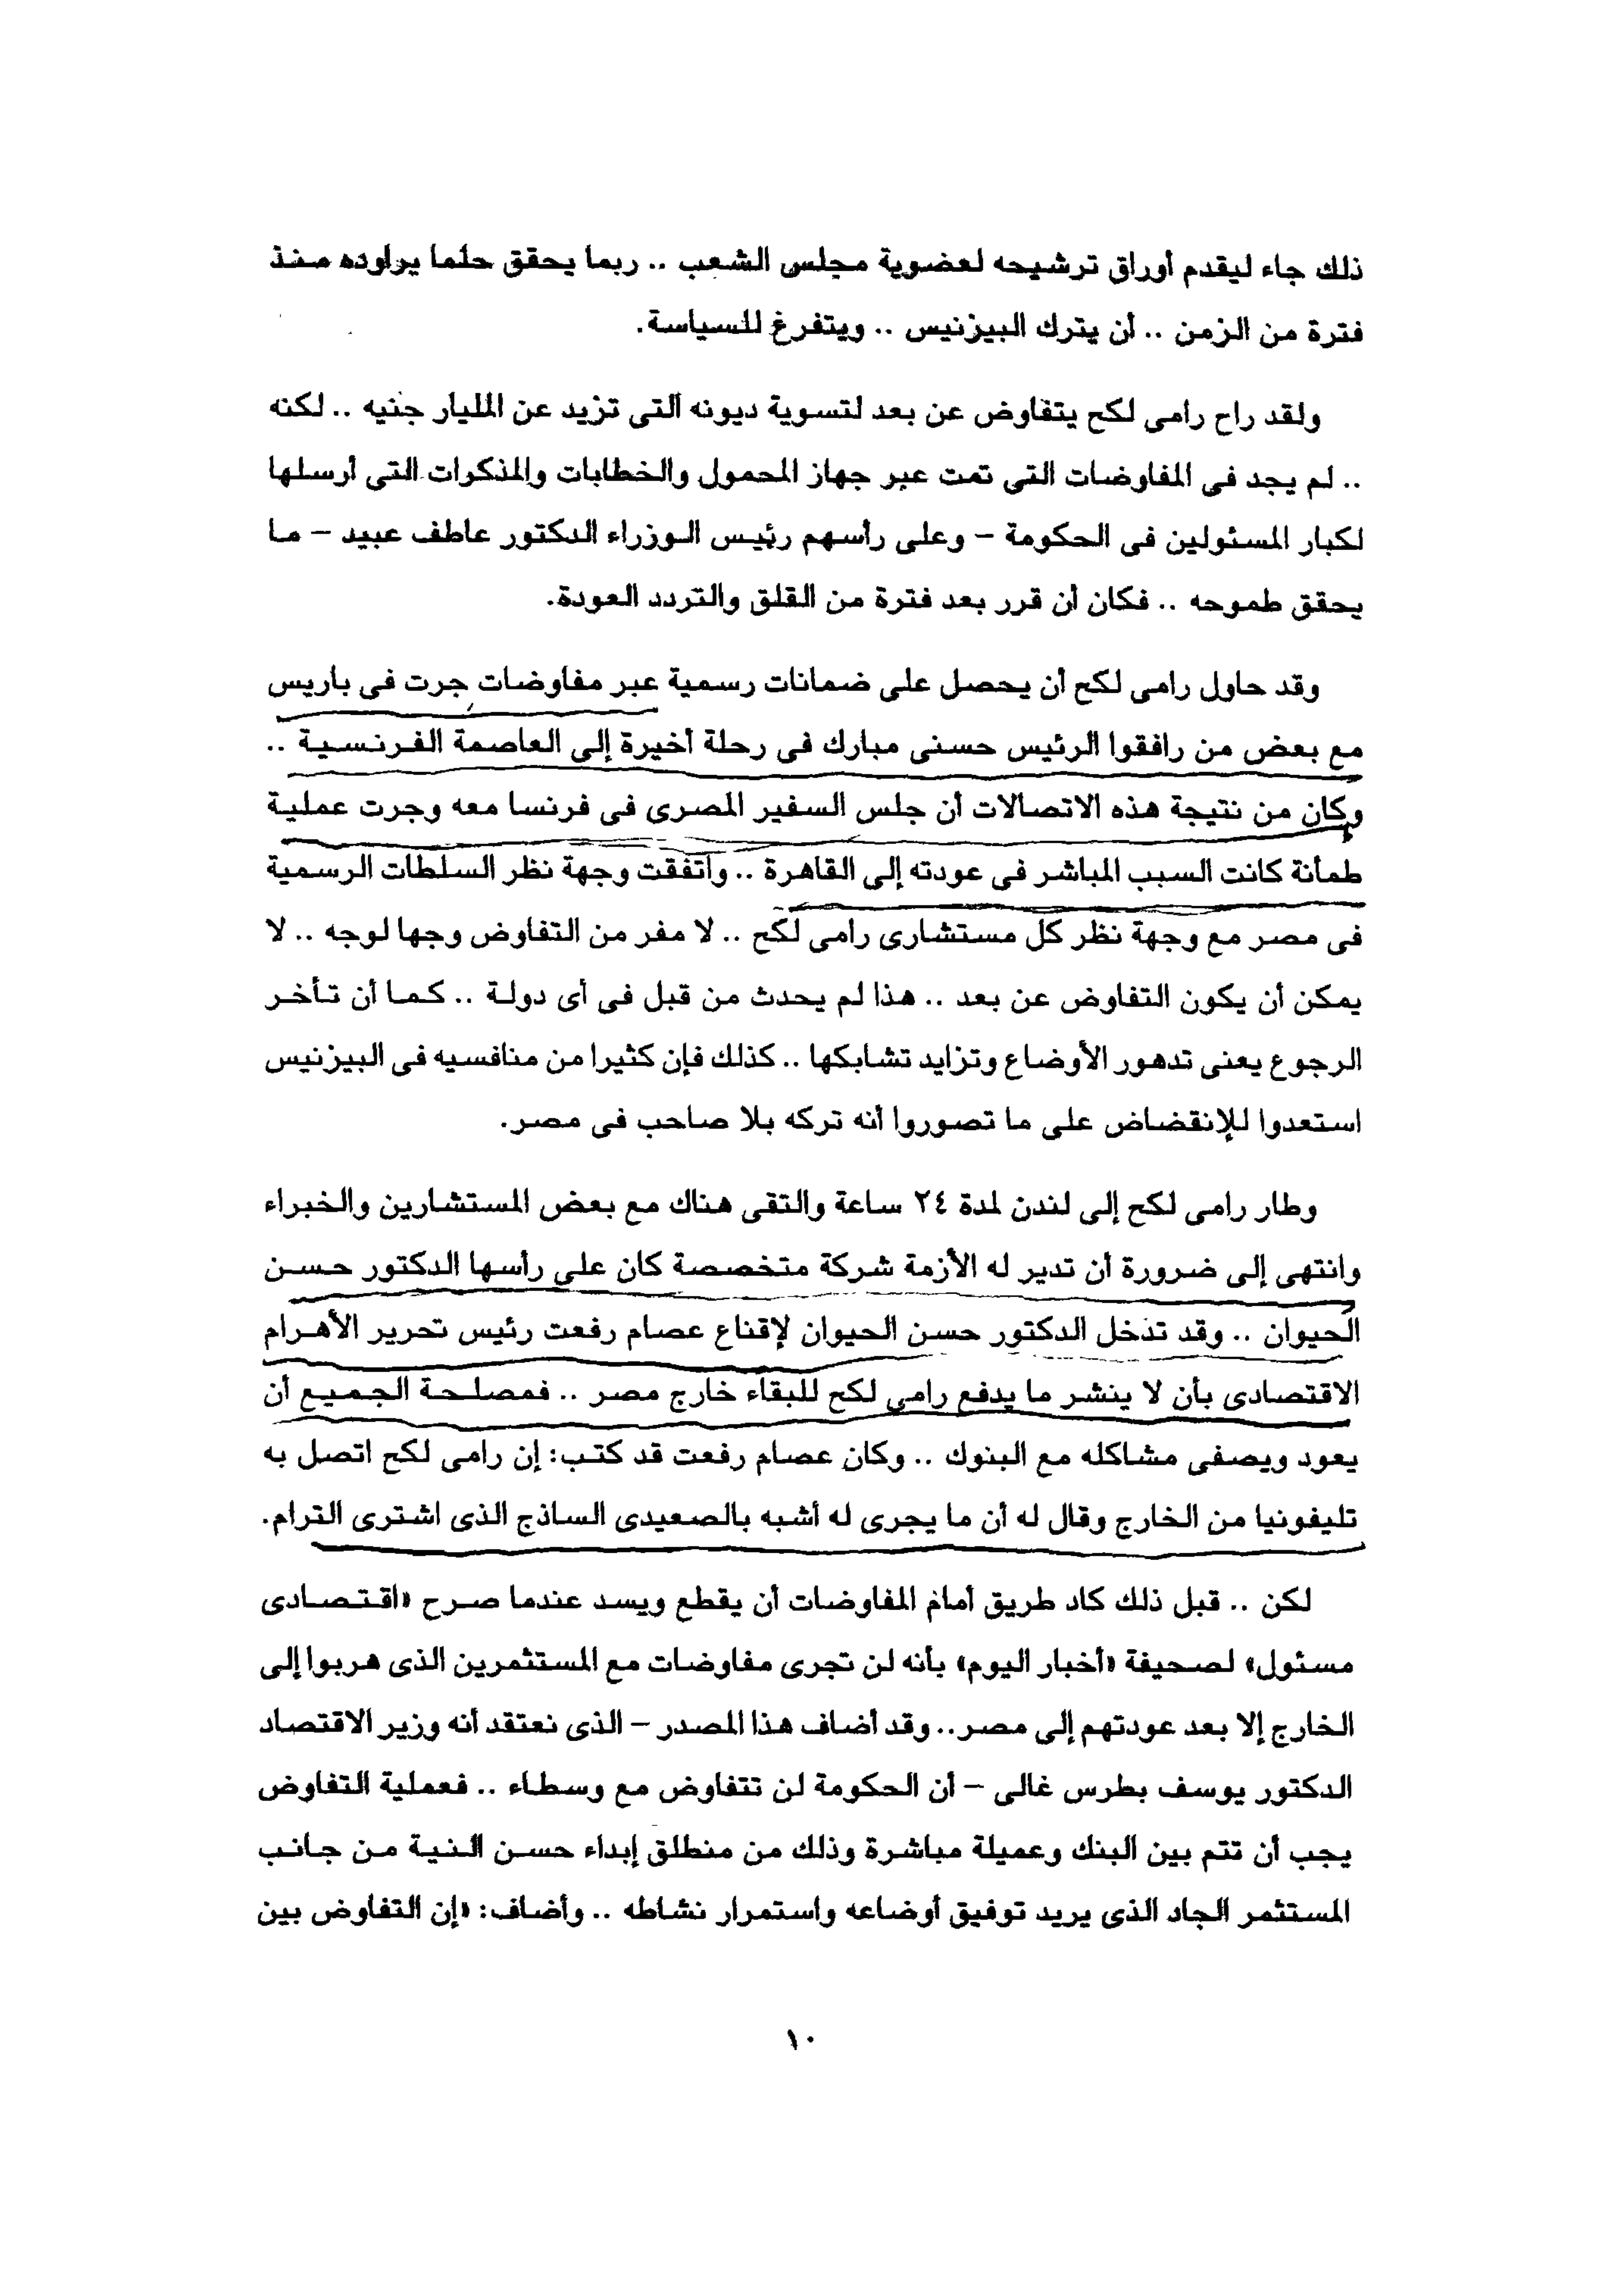 ذلك جاء ليقدم أوراق ترشيحه لعضوية مجلس الشعب .. ربما يحقق حلما يراوده منذ
فترة من الزمن .. أن يترك البيزنيس .. ويتفرغ للسياسة.
ولقد راح رامى لكح يتفاوض عن بعد لتسوية ديونه التى تزيد عن المليار جنيه .. لكنه
.. لم يجد فى المفاوضات التى تمت عبر جهاز المحمول والخطابات والمذكرات التى أرسلها
لكبار المسئولين فى الحكومة – وعلى رأسهم رئيس الوزراء الدكتور عاطف عبيد – ما
يحقق طموحه .. فكان أن قرر بعد فترة من القلق والتردد العودة.
وقد حاول رامى لكح أن يحصل على ضمانات رسمية عبر مفاوضات جرت فى باريس
مع بعض من رافقوا الرئيس حسنى مبارك فى رحلة أخيرة إلى العاصمة الفرنسية ..
وكان من نتيجة هذه الاتصالات أن جلس السفير المصرى فى فرنسا معه وجرت عملية
طمأنة كانت السبب المباشر فى عودته إلى القاهرة .. واتفقت وجهة نظر السلطات الرسمية
فى مصر مع وجهة نظر كل مستشارى رامى لكح .. لا مفر من التفاوض وجها لوجه .. لا
يمكن أن يكون التفاوض عن بعد .. هذا لم يحدث من قبل فى أى دولة .. كما أن تأخر
الرجوع يعنى تدهور الأوضاع وتزايد تشابكها .. كذلك فإن كثيرا من منافسيه فى البيزنيس
استعدوا للإنقضاض على ما تصوروا أنه تركه بلا صاحب فى مصر.
وطار رامى لكح إلى لندن لمدة ٢٤ ساعة والتقى هناك مع بعض المستشارين والخبراء
وانتهى إلى ضرورة أن تدير له الأزمة شركة متخصصة كان على رأسها الدكتور حسن
الحيوان .. وقد تدخل الدكتور حسن الحيوان لإقناع عصام رفعت رئيس تحرير الأهرام
الاقتصادى بأن لا ينشر ما يدفع رامى لكح للبقاء خارج مصر .. فمصلحة الجميع أن
يعود ويصفى مشاكله مع البنوك .. وكان عصام رفعت قد كتب: إن رامى لكح اتصل به
تليفونيا من الخارج وقال له أن ما يجرى له أشبه بالصعيدى الساذج الذى اشترى الترام.
لكن .. قبل ذلك كاد طريق أمام المفاوضات أن يقطع ويسد عندما صرح «اقتصادى
مسئول» لصحيفة «أخبار اليوم» بأنه لن تجرى مفاوضات مع المستثمرين الذى هربوا إلى
الخارج إلا بعد عودتهم إلى مصر.. وقد أضاف هذا المصدر – الذى نعتقد أنه وزير الاقتصاد
الدكتور يوسف بطرس غالى – أن الحكومة لن تتفاوض مع وسطاء .. فعملية التفاوض
يجب أن تتم بين البنك وعميلة مباشرة وذلك من منطلق إبداء حسن النية من جانب
المستثمر الجاد الذى يريد توفيق أوضاعه واستمرار نشاطه .. وأضاف: «إن التفاوض بين
١٠